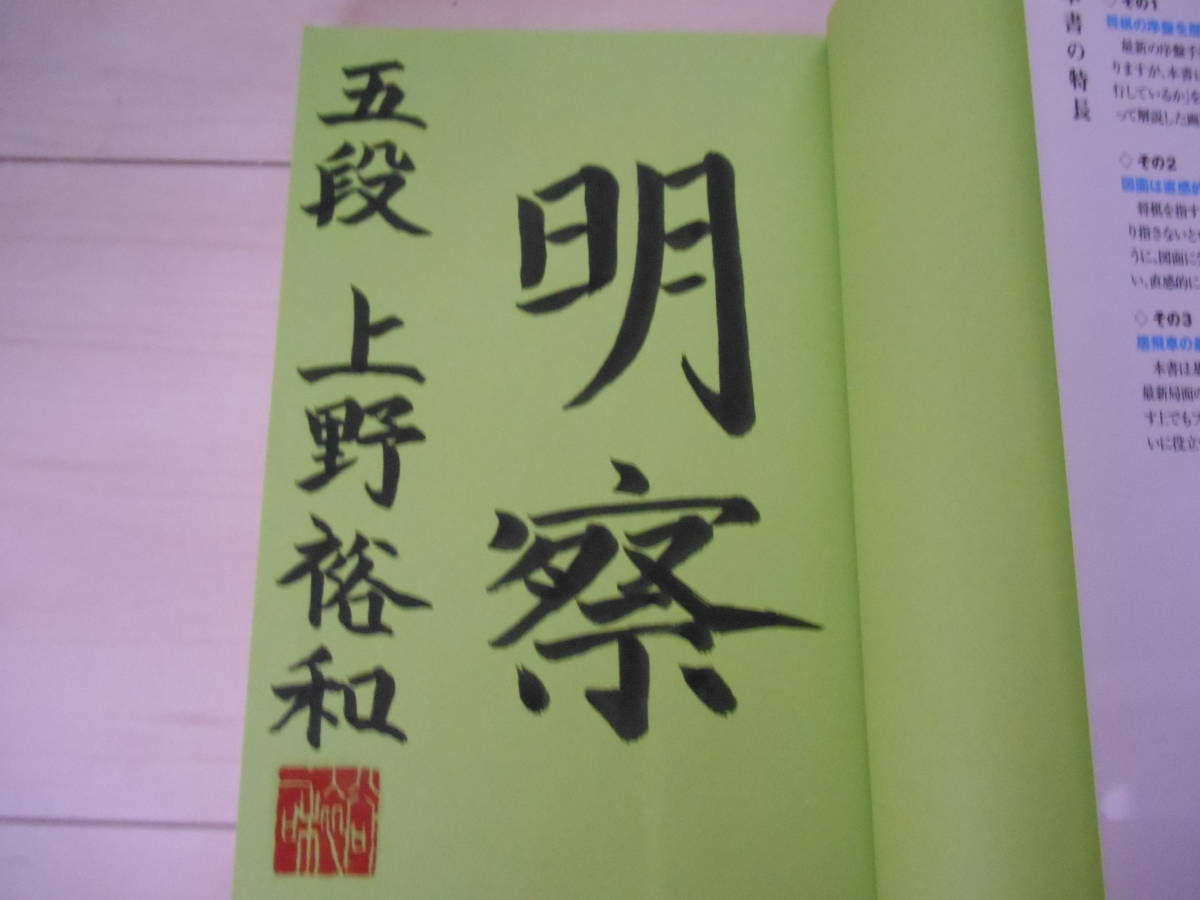 本書の特長
◇その1
将棋の序盤を
最新の序盤手
りますが、本書は
行しているか」を
って解説した画
◇その2
図面は直感的
将棋を指す
り指さないと
うに、図面に
い、直感的に
◇その3
居飛車の最
本書は
最新局面の
す上でも
いに役立
明察
五段 上野裕和